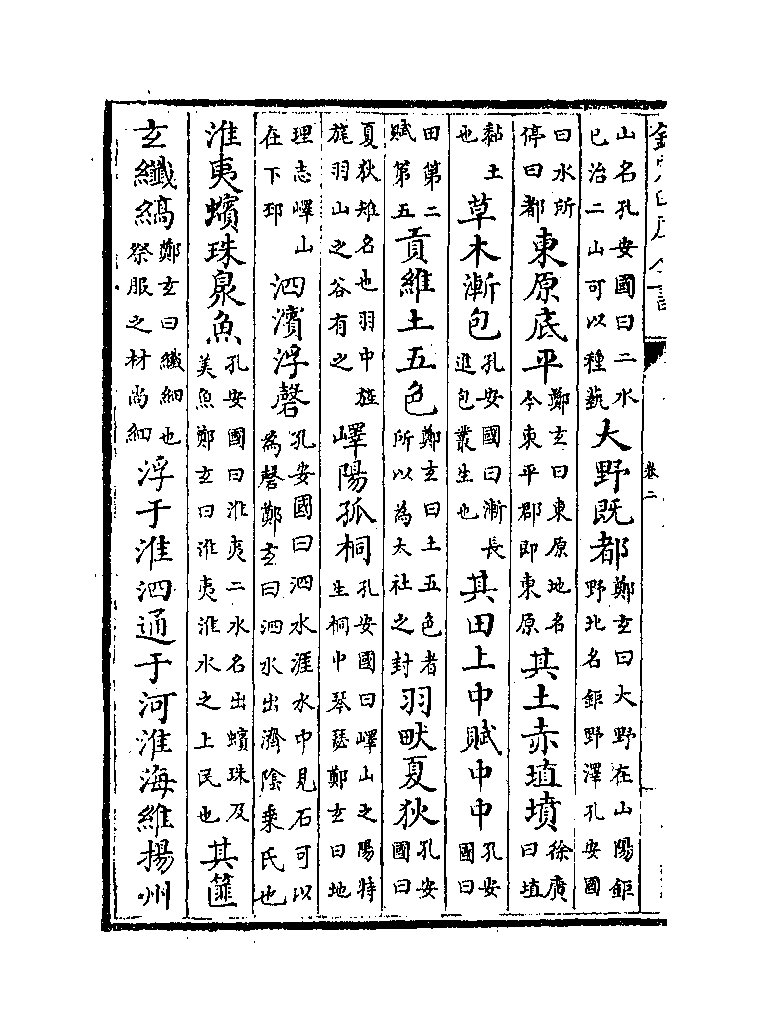 卷二
山名孔安國曰二水已治二山可以種蓺大野既都鄭玄曰大野在山陽鉅野北名鉅野澤孔安國
曰水所停曰都東原底平鄭玄曰東原地名今東平郡即東原其土赤埴墳徐廣曰埴
黏土也草木漸包孔安國曰漸長進包叢生也其田上中賦中中孔安國曰
田第二賦第五貢維土五色鄭玄曰土五色者所以為太社之封羽畎夏狄孔安國曰
夏狄雉名也羽中旌旄羽山之谷有之嶧陽孤桐孔安國曰嶧山之陽特生桐中琴瑟鄭玄曰地
理志嶧山在下邳泗濱浮磬孔安國曰泗水涯水中見石可以為磬鄭玄曰泗水出濟陰乗氏也
淮夷蠙珠臮魚孔安國曰淮夷二水名出蠙珠及美魚鄭玄曰淮夷淮水之上民也其篚
玄纖縞鄭玄曰纖細也祭服之材尚細浮于淮泗通于河淮海維揚州